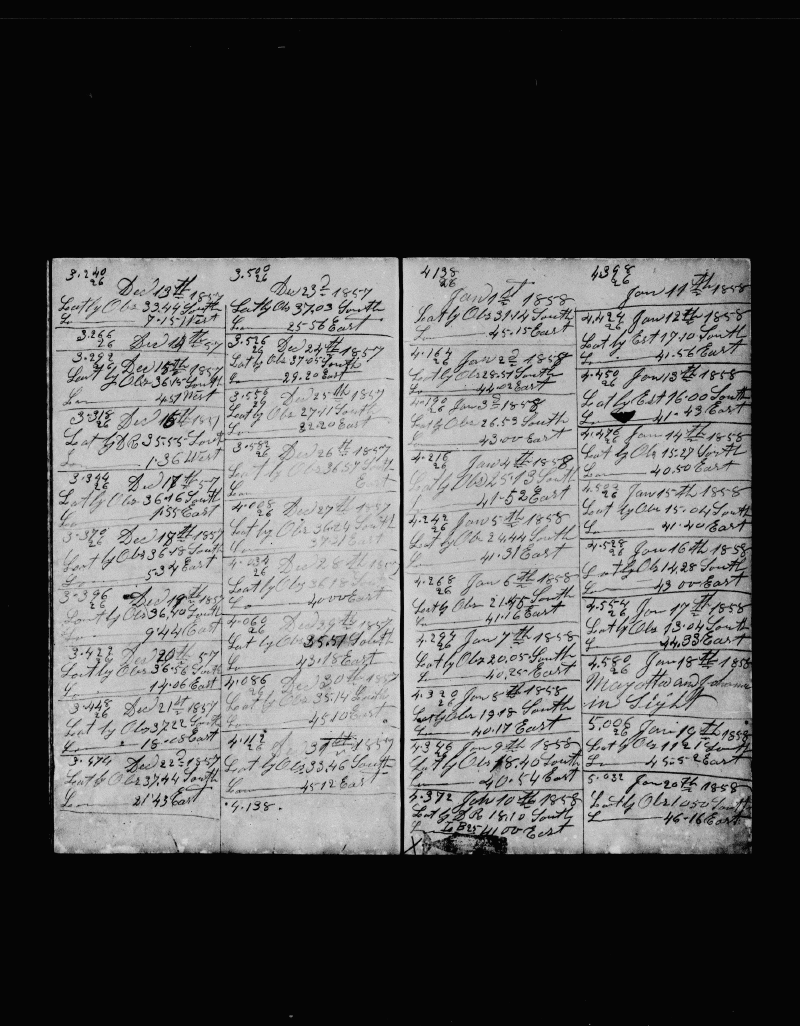 3.240
26
Dec 13th 1857
Lat by Obs 33.44 South
Lon 7.15 West
3.266
26
Dec 14th 57
3.292
26
Dec 15th 1857
Lat by Obs 36.15 South
Lon 4.51 West
3.318
26
Dec 16th 1857
Lat by DR 35.55 South
Lon 1.36 West
3.344
26
Dec 17th 57
Lat by Obs 36.16 South
Lon 1.55 East
3.370
26
Dec 18th 1857
Lat by Obs 36.18 South
Lon 5.34 East
3.396
26
Dec 19th 1857
Lat by Obs 36.40 South
Lon 9.44 East
3.422
26
Dec 20th 57
Lat by Obs 36.56 South
Lon 14.06 East
3.448
26
Dec 21st 1857
Lat by Obs 37.22 South
Lon 18.08 East
3.474
Dec 22d 1857
Lat by Obs 37.44 South
Lon 21.43 East
3.500
26
Dec 23d 1857
Lat by Obs 37.03 South
Lon 25.56 East
3.526
26
Dec 24th 1857
Lat by Obs 37.05 South
Lon 29.20 East
3.556
26
Dec 25th 1857
Lat by Obs 37.11 South
Lon 32.20 East
3.582
26
Dec 26th 1857
Lat by Obs 36.57 South
Lon East
4.008
26
Dec 27th 1857
Lat by Obs 36.24 South
Lon 37.31 East
4.034
26
Dec 28th 1857
Lat by Obs 36.18 South
Lon 40.00 East
4.060
26
Dec 29th 1857
Lat by Obs 35.51 South
Lon 43.18 East
4.086
26
Dec 30th 1857
Lat by Obs 35.14 South
Lon 45.10 East
4.112
26
Dec 31st 1857
Lat by Obs 33.46 South
Lon 45.12 East
4.138.
4138
26
Jan 1st 1858
Lat by Obs 31.14 South
Lon 45.15 East
4.164
26
Jan 2d 1858
Lat by Obs 28.57 South
Lon 44.02 East
4.190
26
Jan 3d 1858
Lat by Obs 26.53 South
Lon 43.00 East
4.216
26
Jan 4th 1858
Lat by Obs 25.13 South
Lon 41.52 East
4.242
26
Jan 5th 1858
Lat by Obs 24.44 South
Lon 41.31 East
4.268
26
Jan 6th 1858
Lat by Obs 21.45 South
Lon 41.16 East
4.294
26
Jan 7th 1858
Lat by Obs 20.05 South
Lon 40.25 East
4.320
26
Jan 8th 1858
Lat by Obs 19.18 South
Lon 40.17 East
4.346
26
Jan 9th 1858
Lat by Obs 18.40 South
Lon 40.54 East
4.372
26
Jan 10th 1858
Lat by DR 18.10 South
L 41.00 East
4398
26
Jan 11th 1858
4.424
26
Jan 12th 1858
Lat by Est 17.10 South
L 41.56 East
4.450
26
Jan 13th 1858
Lat by Est 16.00 South
L 41.43 East
4.476
26
Jan 14th 1858
Lat by Obs 15.27 South
Lon 40.50 East
4.502
26
Jan 15th 1858
Lat by Obs 15.04 South
L 41.40 East
4.528
26
Jan 16th 1858
Lat by Obs 14.28 South
L 43.00 East
4.554
26
Jan 17th 1858
Lat by Obs 13.04 South
L 44.33 East
4.580
26
Jan 18th 1858
Mayotta and Johanna
in Sight
5.006
26
Jan 19th 1858
Lat by Obs 11.21 South
L 45.52 East
5.032
Jan 20th 1858
Lat by Obs 10.50 South
L 46.16 East